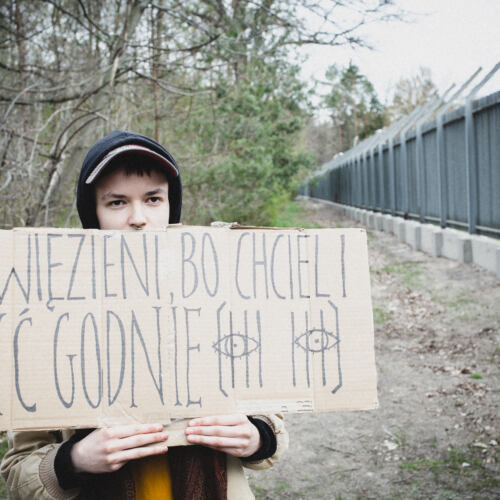 WIĘZIENI, BO CHCIELI
ĆĆ GODNIE